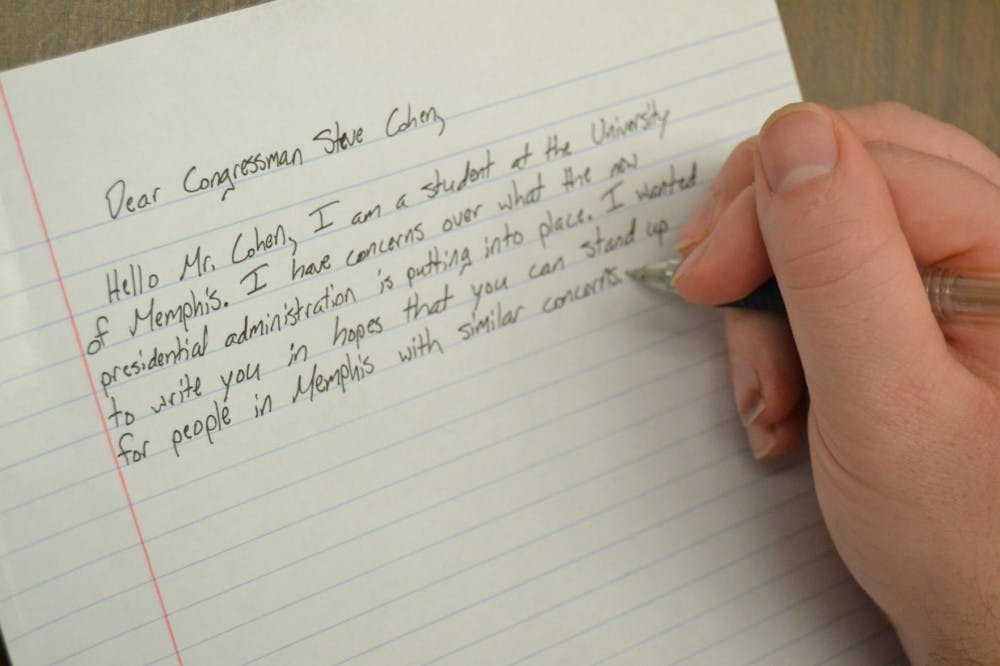 Dear Congressman Steve Cohen,
Hello Mr. Cohen, I am a student at the University
of Memphis. I have concerns over what the new
presidential administration is putting into place. I wanted
to write you in hopes that you can stand up
for people in Memphis with similar concerns.